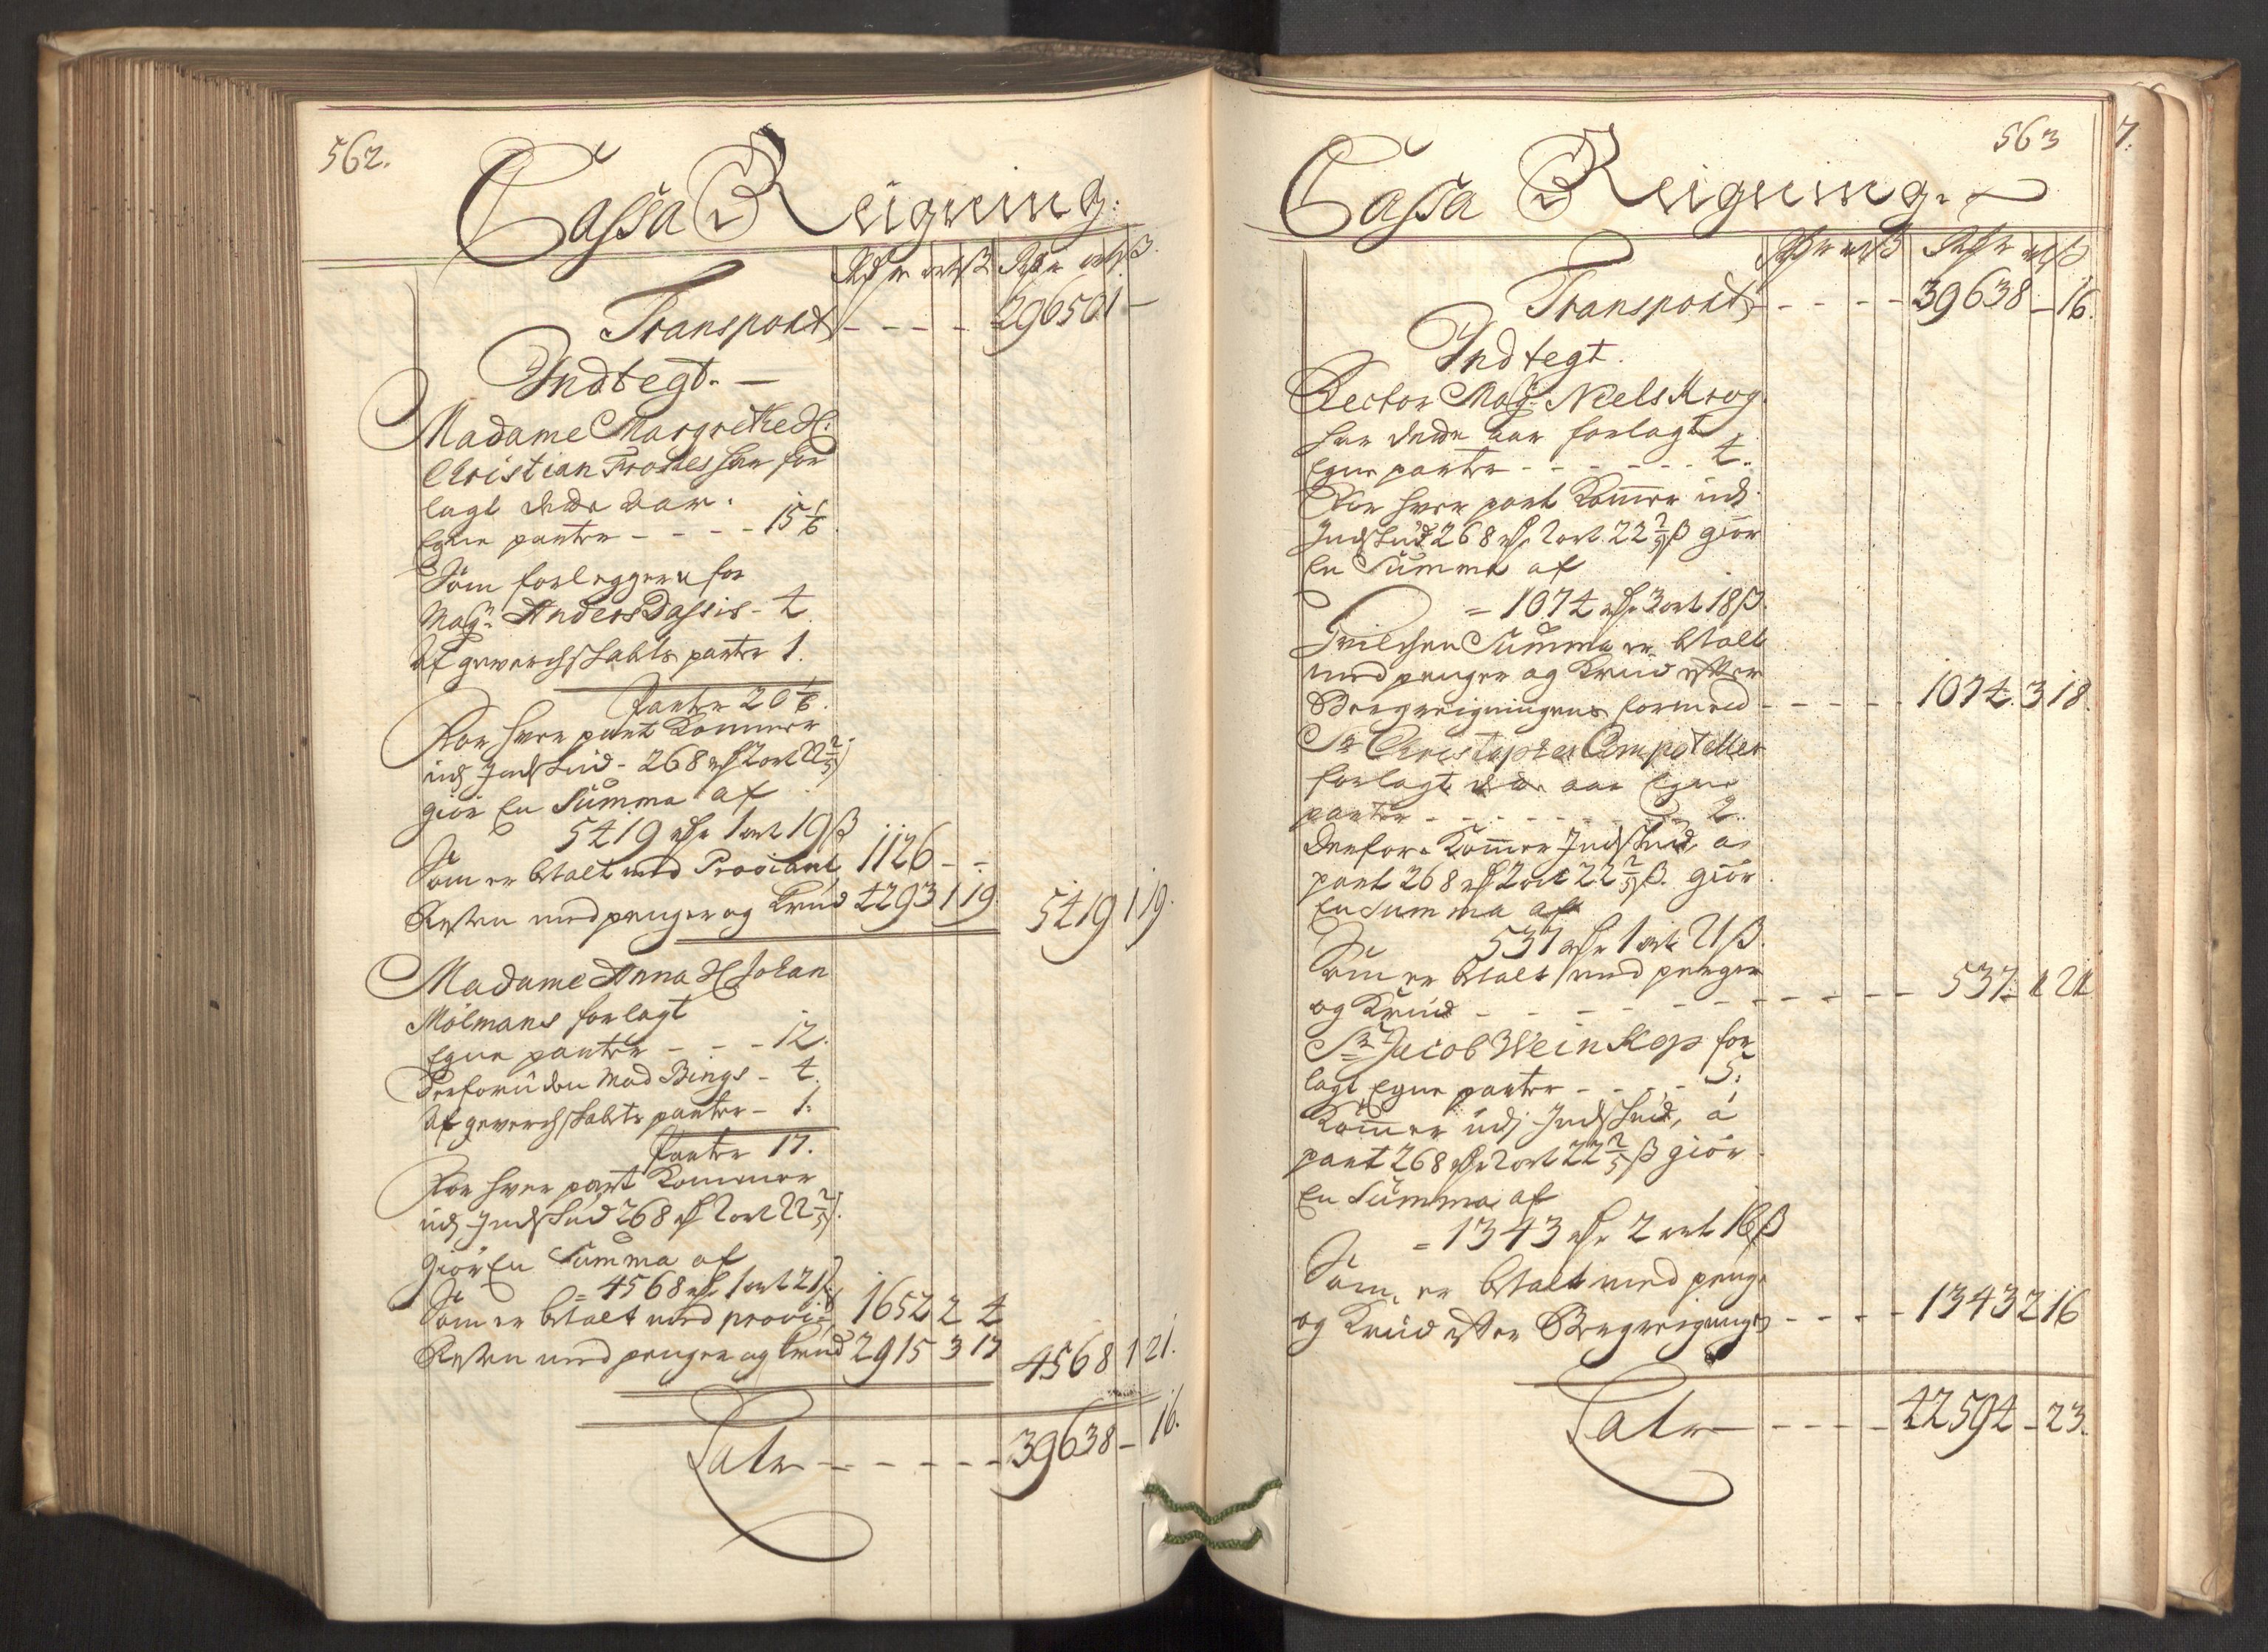 562.
Cassa Reigning.
Rdr ort ß Rdr ort ß.
Transport - - - - 29650 1 -
Indtegt. -
Madame Margrethe Sl:
Christian Frostes har for
lagt dette aar.
Egne parter - - - - 15 1/6.
Som forleggere for
Mag: Anders Dassis - 4.
Af gewerchskabts parter 1.
Parter 20 1/6.
For hver part kommer
udj Indskud - 268 rdr 2 ort 22 2/5 ß
giør En Summa af
5419 rdr 1 ort 19 ß
Som er betalt med Proviant 1126 - -
Resten med penger og Krud 4293 1 19. 5419 1 19.
Madame Anna Sl Johan
Mølmans forlagt
Egne parter - - - 12.
Derforuden Mad Bings - 4.
Af gewerchskabts parter - 1.
Parter 17.
For hver part kommer
udj Indskud 268 rdr 2 ort 22 2/5 ß.
giør En Summa af
= 4568 rdr 1 ort 21 ß
Som er betalt med provi: 1652 2 4
Resten med penger og Krud 2915 3 17 4568 1 21.
Latr - - - - - - 39638 - 16.
563
Cassa Reigning.
Rdr ort ß Rdr ort ß
Transport - - - - 39638 - 16.
Indtegt.
Rector Mag: Niels Krog.
har dette aar forlagt
Egne parter - - - - - - 4.
For hver part kommer udj
Indskud 268 rdr 2 ort 22 2/5 ß giør
En Summa af
= 1074 rdr 3 ort 18 ß.
Hvilchen Summa er betalt
med penger og Krud efter
Bergreigningens formeld - - - - - 1074. 3 18.
Sr Christopher Campsteller
forlagt dette aar Egne
parter - - - - - - - 2.
Derfore kommer Indskud a
part 268 rdr 2 ort 22 2/5 ß. giør
En Summa af
537 rdr 1 ort 21 ß.
Som er betalt med penger
og Krud - - - - - - - - 537. 1 21
Sr Jacob Weinkop for
lagt Egne parter - - - - 5.
Kommer udj Indskud, a
part 268 rdr 2 ort 22 2/5 ß giør
En Summa af
= 1343 rdr 2 ort 16 ß
Som er betalt med penge
og Krud efter Bergreigninge - - - - 1343 2 16
Latr - - - - 42594 - 23.
7.